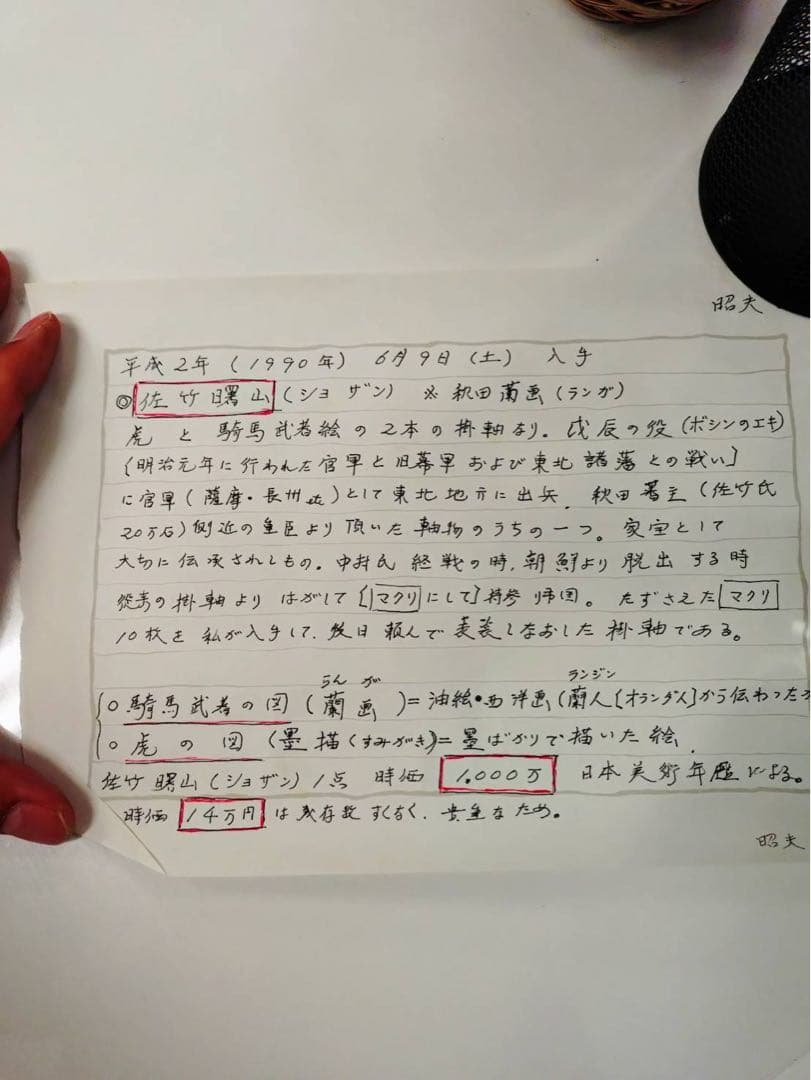 昭夫
平成2年(1990年) 6月9日(土) 入手
◎佐竹曙山(ショザン) ※秋田蘭画(ランガ)
虎と騎馬武者絵の2本の掛軸なり。戊辰の役(ボシンのエキ)
{明治元年に行われた官軍と旧幕軍および東北諸藩との戦い}
に官軍(薩摩・長州etc)として東北地方に出兵、秋田藩主(佐竹氏
20万石)側近の重臣より頂いた軸物のうちの一つ。家宝として
大切に伝承されしもの。中井氏 終戦の時、朝鮮より脱出する時
従来の掛軸よりはがして{マクリにして}持参帰国。たずさえたマクリ
10枚を私が入手して、後日頼んで表装しなおした掛軸である。
らんが ランジン
○騎馬武者の図(蘭画)=油絵・西洋画(蘭人{オランダ人}から伝わった
○虎の図(墨描(すみがき)=墨ばかりで描いた絵。
佐竹曙山(ショザン)1点 時価 1,000万 日本美術年鑑による。
時価 14万円 は残存数すくなく、貴重なため。
昭夫